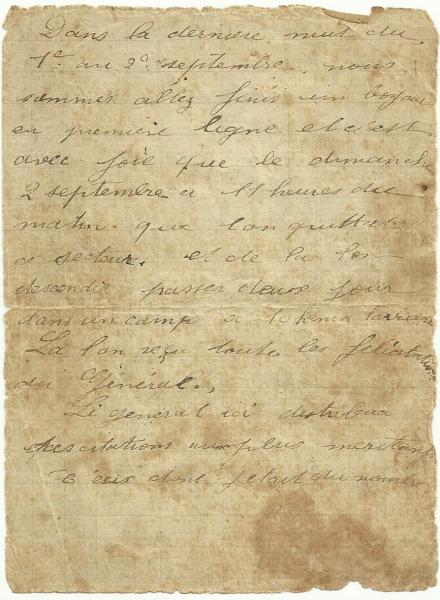 Dans la dernière nuit du
1e au 2e septembre nous
sommes allez finir un boyau
en première ligne et c'est
avec joie que le dimanche
2 septembre a 11 heures du
matin que l'on quitta
ce secteur. et de la l'on
descendi passer deux jour
dans un camp a 10 kema larriere
La l'on reçu toute les félicitations
du Général,
Le general ici distribua
des citations aux plus meritants
ceux dont j'etait du nombre